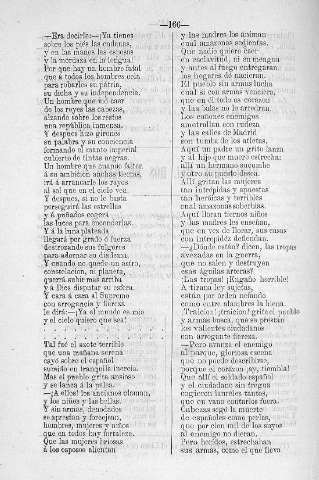 —160—
—Era decirle:—¡Ya tienes
sobre los piés las cadenas,
y en las manos las esposas
y la mordaza en la lengua!
Por que hay un hombre fatal
que á todos los hombres odia
para robarles su pátria,
su dicha y su independencia.
Un hombre que vió caer
de los reyes las cabezas,
alzando sobre los restos
una república inmensa.
Y despues hizo girones
su palabra y su conciencia
formando el manto imperial
cubierto de tintas negras.
Un hombre que cuando falten
á su ambicion anchas tierras,
irá á arrancarle los rayos
al sol que en el cielo ven.
Y despues, si no le basta
perseguirá las estrellas
y á puñados cogerá
las luces para encenderlas.
Y á la luna plateada
llegará por grado ó fuerza
destrozando sus fulgores
para adornar su diadema.
Y cuando no quede un astro,
constelacion, ni planeta,
querrá subir mas arriba
y á Dios disputar su esfera.
Y cara á cara al Supremo
con arrogancia y fiereza
le dirá:—¡Ya el mundo es mio
y el cielo quiero que sea!
Tal fué el azote terrible
que una mañana serena
cayó sobre el español
sumido en tranquila inercia.
Mas el pueblo grita ansioso
y se lanza á la pelea.
—¡A ellos! los ancianos claman,
y los niños y las bellas.
Y sin armas, denodados
se aprestan y forcejean,
hombres, mujeres y niños
que en todos hay fortaleza.
Que las mujeres briosas
á los esposos alientan
y las madres los animan
cual amazonas sedientas.
Que nadie quiere caer
en esclavitud, ni su mengua
y antes al fuego entregaran
los hogares do nacieran.
El pueblo sin armas lucha
cual si con armas venciera,
que en él todo es corazon
y las balas no le arredran.
Los cañones enemigos
ametrallan con rudeza
y las calles de Madrid
son tumba de los atletas.
Aquí un padre un grito lanza
y al hijo que muere estrechan
allí un hermano sucumbe
y otro su puesto desea.
Allí gritan las mujeres
tan intrépidas y apuestas
tan heróicas y terribles
cual amazonas soberbias.
Aquí lloran tiernos niños
y las madres les enseñan,
que en vez de llorar, sus casas
con intrepidez defiendan.
—¿Dónde están? dicen, las tropas
avezadas en la guerra,
que no salen y destruyen
esas águilas arteras?
¡Las tropas! ¡Engaño horrible!
A tirana ley sujetas,
están por órden nefando
como entre alambres la hiena.
¡Traicion! ¡traicion! grita el pueblo
y armas busca, que se prestan
los valientes ciudadanos
con arrogante fiereza.
—Pero avanza el enemigo
al parque, gloriosa escena
que no puedo describiros,
porque el corazon ¡ay, tiembla!
Que allí el soldado español
y el ciudadano sin tregua
cogieron laureles tantos,
que en vano contarlos fuera.
Cabezas segó la muerte
de españoles como perlas,
que por cien mil de los suyos
al enemigo no dieran.
Pero heridos, estrechaban
sus armas, como el que lleva